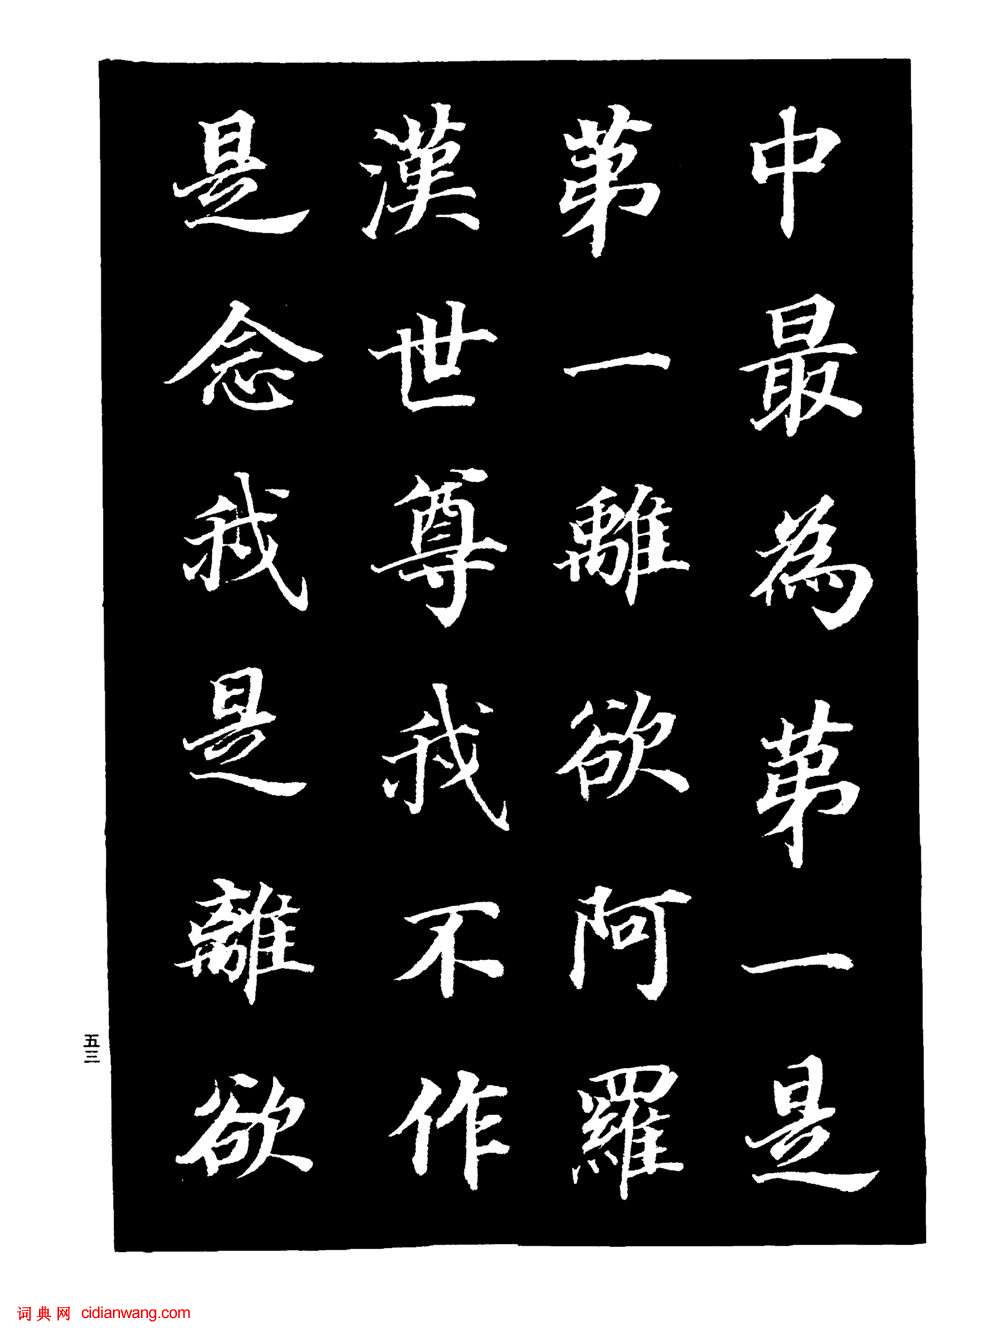 中最為苐一是
苐一離欲阿羅
漢世尊我不作
是念我是離欲
五三
词典网 cidianwang.com